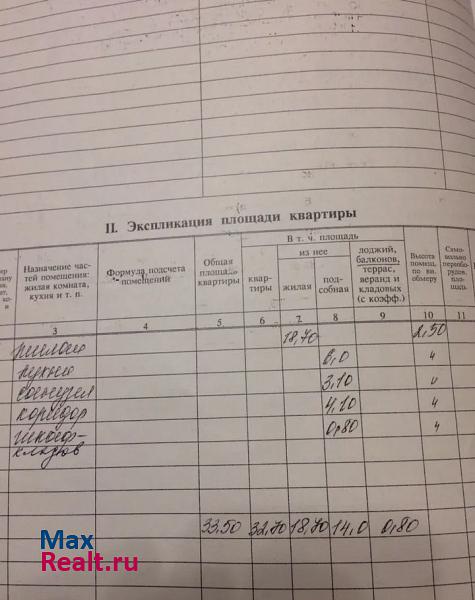 II. Экспликация площади квартиры
Назначение час-
тей помещения:
жилая комната,
кухня и т. п.
Формула подсчета
помещений
Общая
площадь
квартиры
В т. ч. площадь
квар-
тиры
из нее
жилая
под-
собная
лоджий,
балконов,
террас,
веранд и
кладовых
(с коэфф.)
Высота
помещ.
по вн.
обмеру
Само-
вольно
перéобо-
рудов.
пло-
щадь
3 4 5 6 7 8 9 10 11
жилая 18,70 2,50
кухня 6,0 "
санузел 3,10 "
коридор 4,10 "
шкаф- 0,80 "
кладов
33,50 32,70 18,70 14,0 0,80
Max
Realt.ru